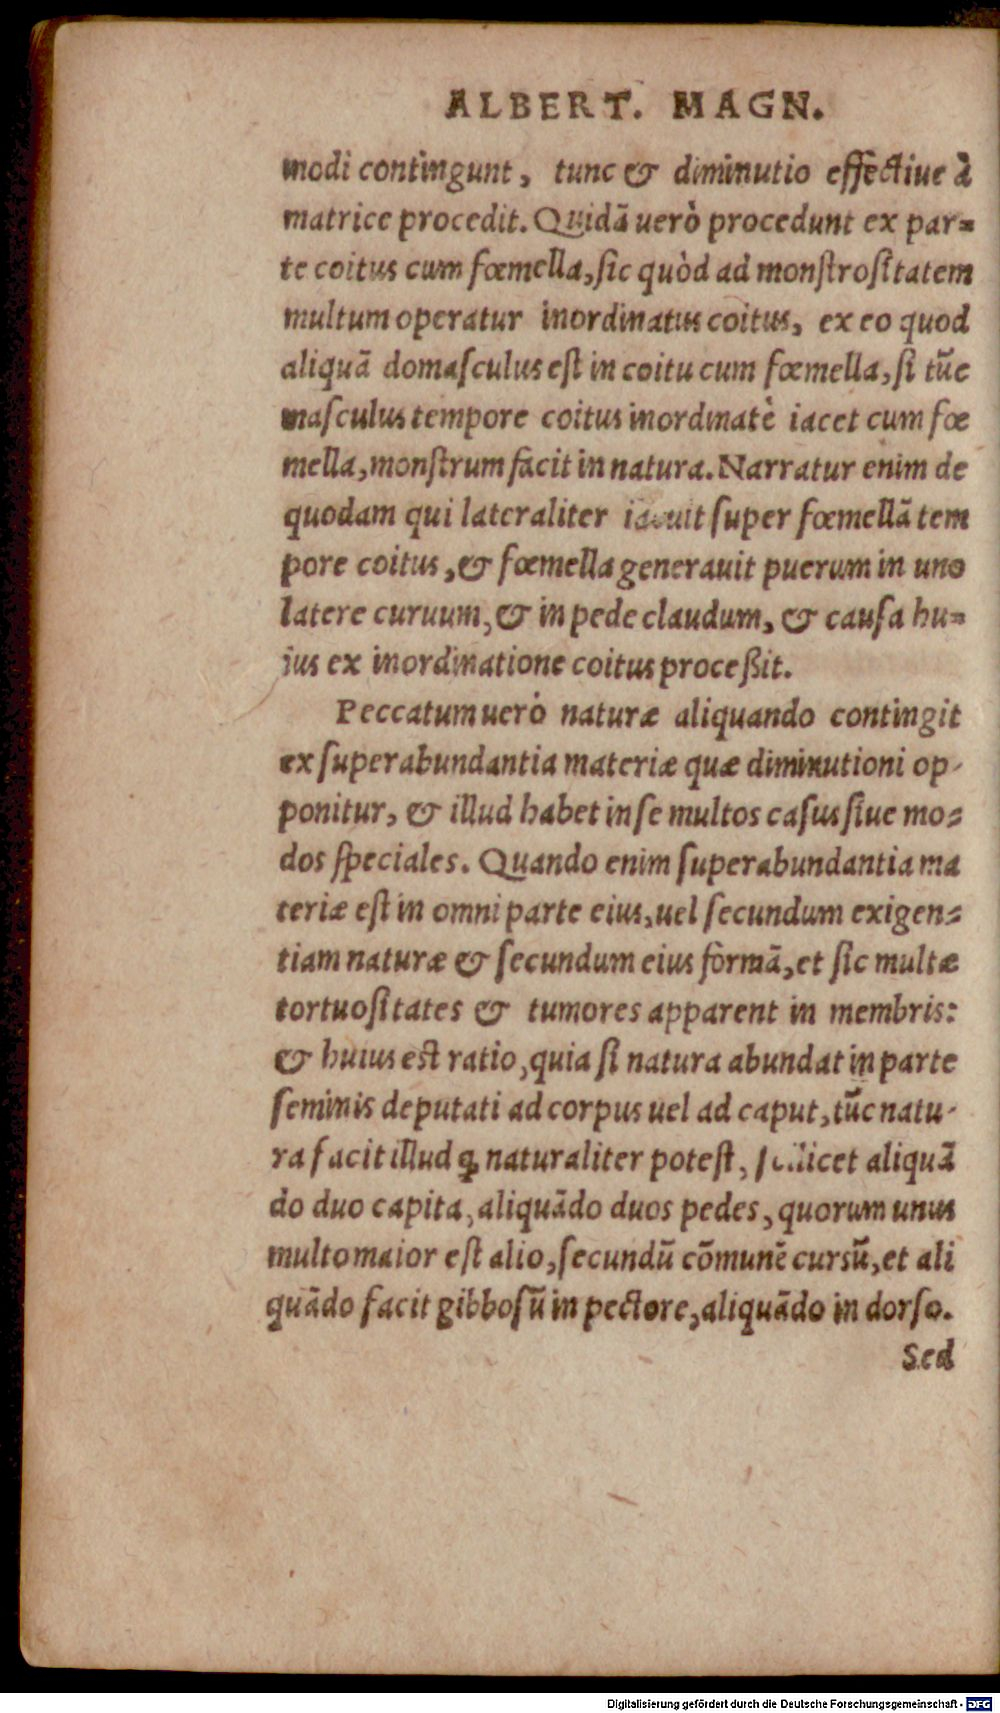 ALBERT. MAGN.
modi contingunt, tunc & diminutio effectiue à
matrice procedit. Quidã uerò procedunt ex par=
te coitus cum fœmella, ſic quòd ad monſtroſitatem
multum operatur inordinatus coitus, ex eo quod
aliquã domaſculus eſt in coitu cum fœmella, ſi tũc
maſculus tempore coitus inordinatè iacet cum fœ
mella, monſtrum facit in natura. Narratur enim de
quodam qui lateraliter iacuit ſuper fœmellã tem
pore coitus, & fœmella generauit puerum in uno
latere curuum, & in pede claudum, & cauſa hu=
ius ex inordinatione coitus proceßit.
Peccatum uerò naturæ aliquando contingit
ex ſuperabundantia materiæ quæ diminutioni op-
ponitur, & illud habet in ſe multos caſus ſiue mo=
dos ſpeciales. Quando enim ſuperabundantia ma
teriæ eſt in omni parte eius, uel ſecundum exigen=
tiam naturæ & ſecundum eius formã, et ſic multæ
tortuoſitates & tumores apparent in membris:
& huius eſt ratio, quia ſi natura abundat in parte
ſeminis deputati ad corpus uel ad caput, tũc natu-
ra facit illud ꝙ naturaliter poteſt, ſcilicet aliquã
do duo capita, aliquãdo duos pedes, quorum unus
multo maior eſt alio, ſecundũ cõmunẽ curſũ, et ali
quãdo facit gibboſũ in pectore, aliquãdo in dorſo.
Sed
Digitalisierung gefördert durch die Deutsche Forschungsgemeinschaft - DFG